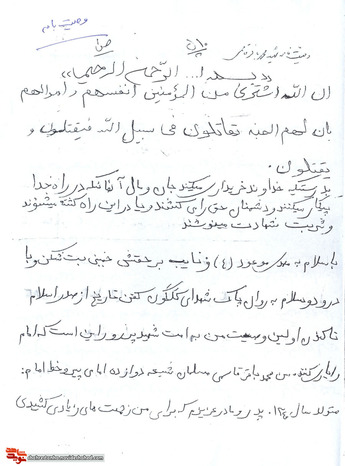 وصیت نامه
«بسم ا... الرّحمن الرّحیم»
ان الله اشتری من المؤمنین انفسهم و اموالهم
بان لهم الجنه یقاتلون فی سبیل الله فیقتلون و
یقتلون.
بدرستیکه خداوند خریداری میکند جان و مال آنانکه در راه خدا
پیکار میکنند و دشمنان حق را می کشند و یا در این راه کشته میشوند
و شربت شهادت مینوشند
با سلام به مهدی موعود (ع) و نایب بر حقش خمینی بت شکن و با
درود و سلام به روان پاک شهدای گلگون کفن تاریخ از صدر اسلام
تاکنون اولین وصیت من به امت شهید پرور این است که امام
را یاری کنند. من محمد باقر قاسمی مسلمان شیعه دوازده امامی پیرو خط امام:
متولد سال ۱۳۴۰. پدر و مادر عزیزم که برای من زحمت های زیادی کشیدی